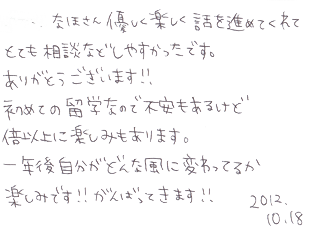 なほさん 優しく楽しく 話を進めてくれて
とても相談などしやすかったです。
ありがとうございます!!
初めての留学なので不安もあるけど
倍以上に楽しみもあります。
一年後自分がどんな風に変わってるか
楽しみです!! がんばってきます!!
2012.
10.18